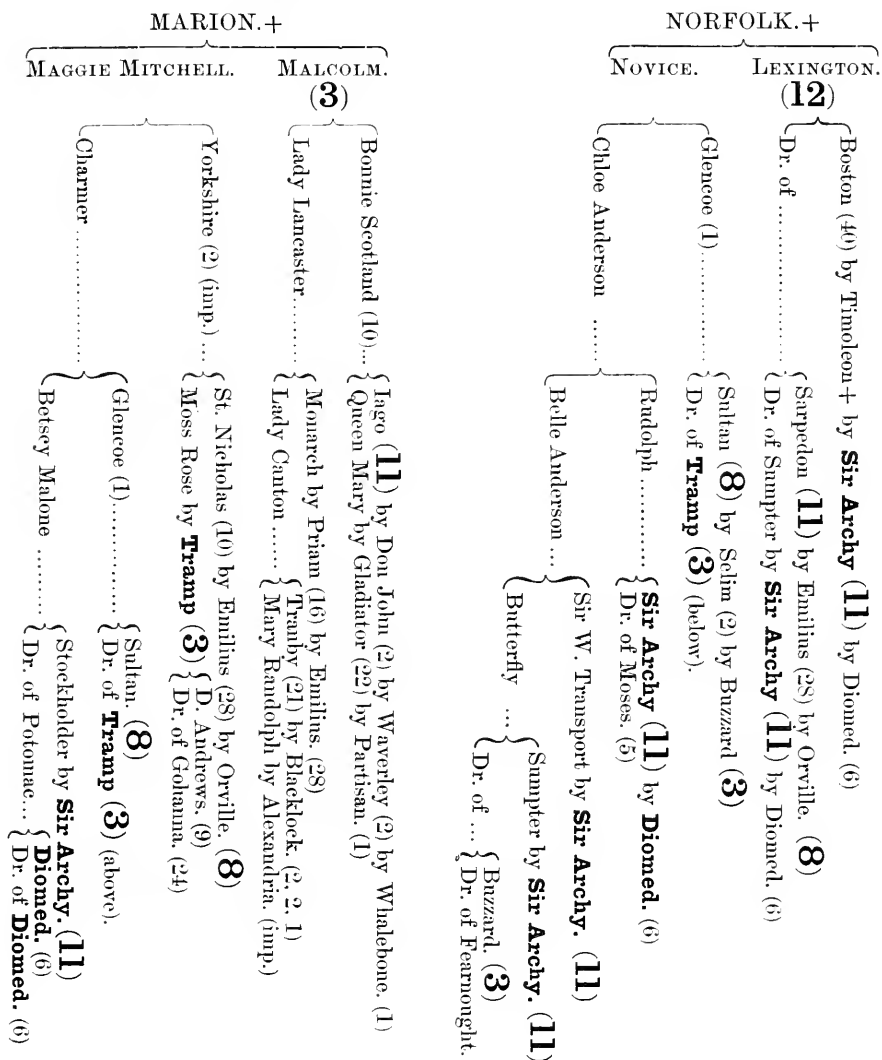 MARION.+
MAGGIE MITCHELL. MALCOLM.
(3)
Bonnie Scotland (10)...
Iago (11) by Don John (2) by Waverley (2) by Whalebone. (1)
Queen Mary by Gladiator (22) by Partisan. (1)
Lady Lancaster........
Monarch by Priam (16) by Emilius. (28)
Lady Canton ......
Tranby (21) by Blacklock. (2, 2, 1)
Mary Randolph by Alexandria. (imp.)
Yorkshire (2) (imp.) ...
St. Nicholas (10) by Emilius (28) by Orville. (8)
Moss Rose by Tramp (3)
D. Andrews. (9)
Dr. of Gohanna. (24)
Charmer ..................
Glencoe (1)...............
Sultan. (8)
Dr. of Tramp (3) (above).
Betsey Malone .........
Stockholder by Sir Archy. (11)
Dr. of Potomac...
Diomed. (6)
Dr. of Diomed. (6)
NORFOLK.+
NOVICE. LEXINGTON.
(12)
Boston (40) by Timoleon+ by Sir Archy (11) by Diomed. (6)
Dr. of ..................
Sarpedon (11) by Emilius (28) by Orville. (8)
Dr. of Sumpter by Sir Archy (11) by Diomed. (6)
Glencoe (1)...............
Sultan (8) by Selim (2) by Buzzard (3)
Dr. of Tramp (3) (below).
Chloe Anderson ......
Rudolph ...............
Sir Archy (11) by Diomed. (6)
Dr. of Moses. (5)
Belle Anderson ...
Sir W. Transport by Sir Archy. (11)
Butterfly ...
Sumpter by Sir Archy. (11)
Dr. of ....
Buzzard. (3)
Dr. of Fearnought.